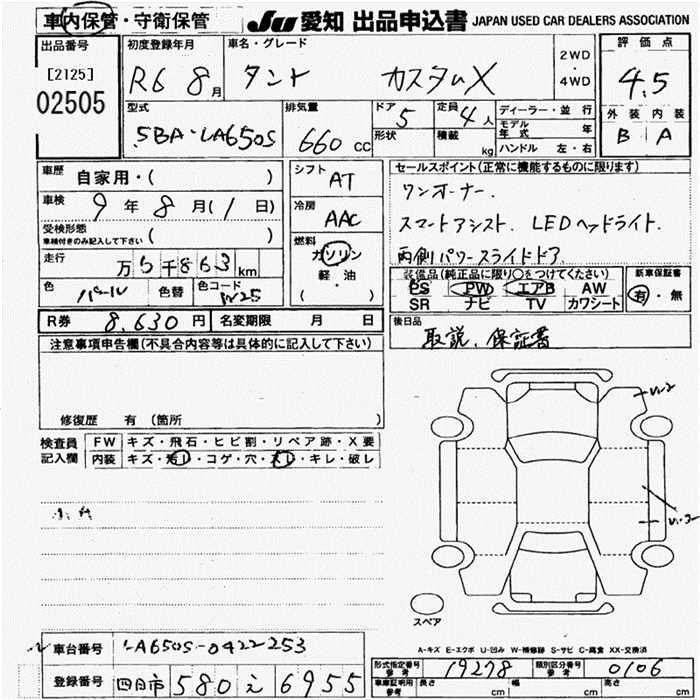 車内保管・守衛保管
JU 愛知 出品申込書 JAPAN USED CAR DEALERS ASSOCIATION
出品番号
[2125]
02505
初度登録年月
R6 8月
車名・グレード
タント カスタムX
2WD
・
4WD
評価点
4.5
外装 内装
B A
型式
5BA-LA650S
排気量
660 cc
ドア 5
形状
定員 4人
積載 kg
ディーラー・並行
モデル年式 年
ハンドル 左・右
車歴
自家用・( )
車検
9年 8月(1日)
受検形態
車検付きのみ記入して下さい ( )
走行
万5千863km
色 パール 色替 色コード W25
シフト
AT
冷房
AAC
燃料
ガソリン
軽・油
( )
セールスポイント(正常に機能するものに限ります)
ワンオーナー.
スマートアシスト. LEDヘッドライト.
両側パワースライドドア.
装備品(純正品に限り○をつけてください)
PS PW エアB AW
SR ナビ TV カワシート
新車保証書
有・無
R券 8,630円 名変期限 月 日
後日品
取説、保証書
注意事項申告欄(不具合内容等は具体的に記入して下さい)
修復歴 有 (箇所 )
検査員
記入欄
FW キズ・飛石・ヒビ割・リペア跡・X要
内装 キズ・汚レ・コゲ・穴・スレ・キレ・破レ
スペア
A-キズ E-エクボ U-凹み W-補修跡 S-サビ C-腐食 XX-交換済
車台番号 LA650S-0422253
登録番号 四日市 580 え 6955
形式指定番号
参考
19278
類別区分番号
参考
0106
車庫証明用
参考
長さ cm 幅 cm 高さ cm